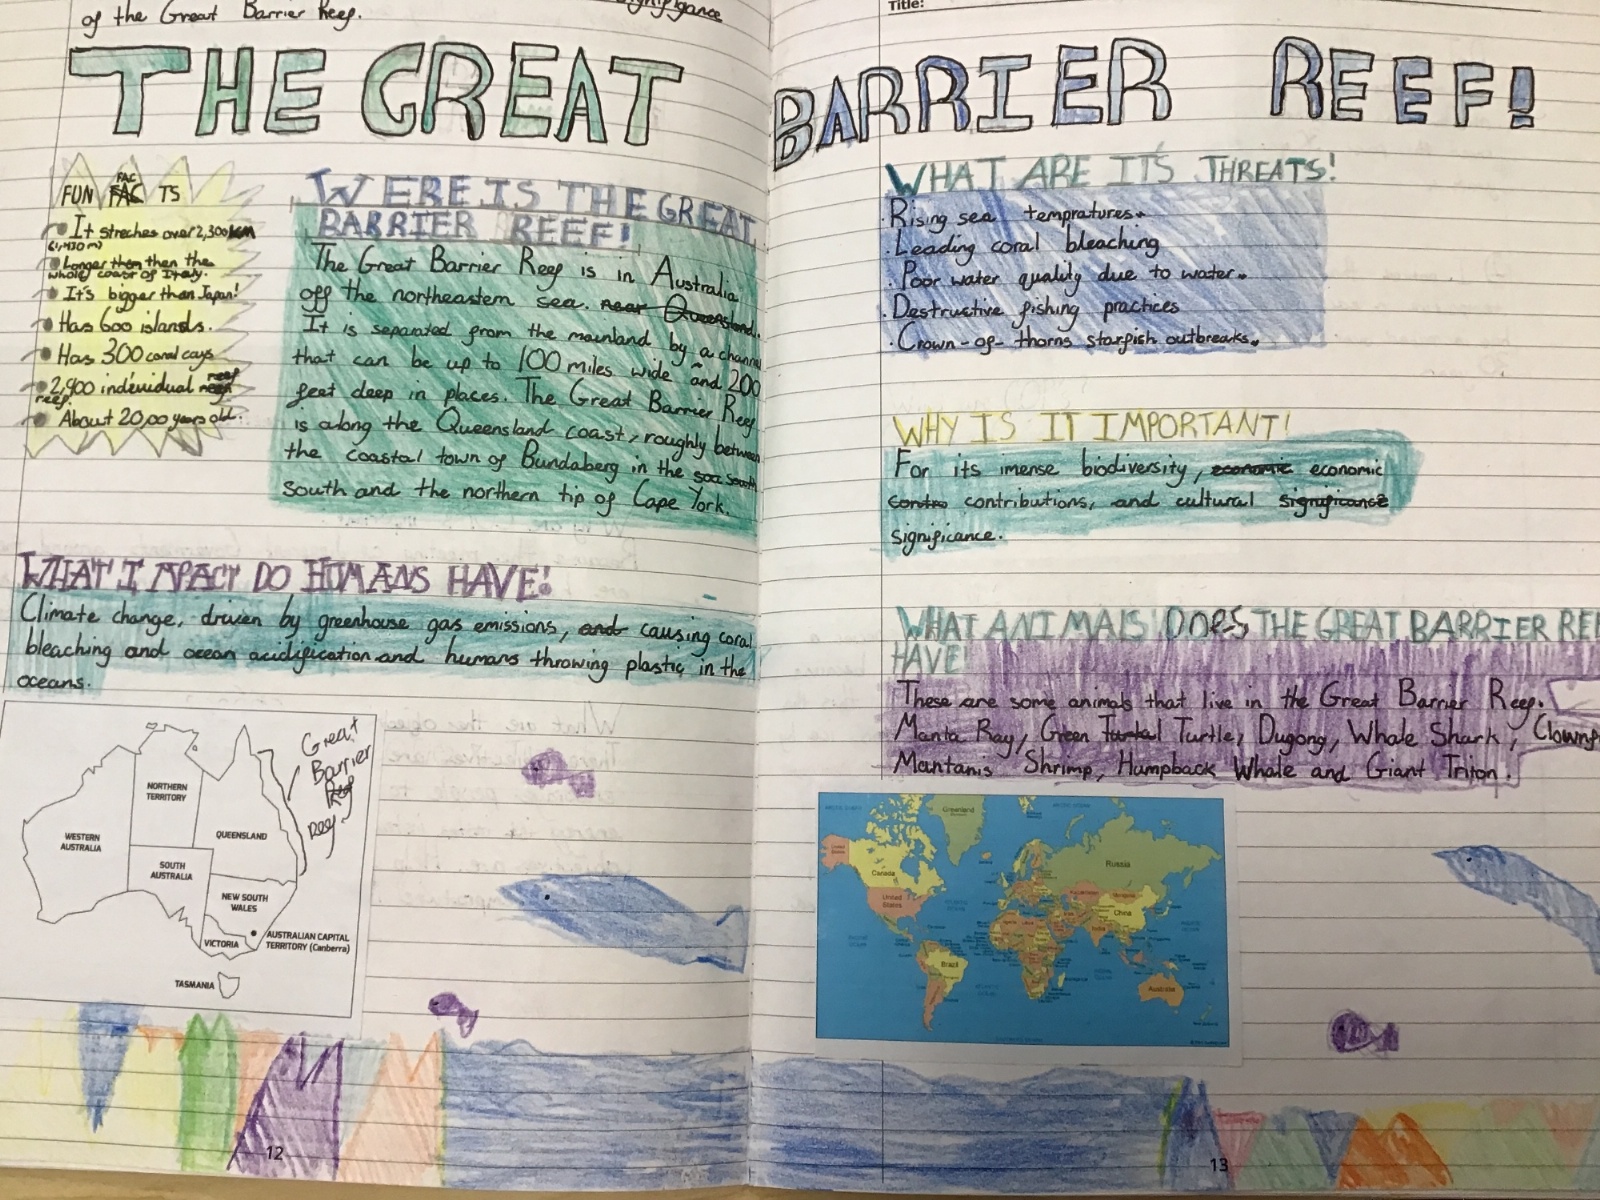 of the Great Barrier Reef.
significance
Title:
THE GREAT BARRIER REEF!
FUN FACTS
It streches over 2,300km
(1,430 m)
Longer then then the
whole coast of Italy.
It's bigger than Japan!
Has 600 islands.
Has 300 coral cays
2,900 individual reef
reef.
About 20,00 years old.
WERE IS THE GREAT
BARRIER REEF!
The Great Barrier Reef is in Australia
off the northeastern sea. near Queensland.
It is separated from the mainland by a channel
that can be up to 100 miles wide and 200
feet deep in places. The Great Barrier Reef
is along the Queensland coast, roughly between
the coastal town of Bundaberg in the soa south
south and the northern tip of Cape York.
WHAT IMPACT DO HUMANS HAVE!
Climate change, driven by greenhouse gas emissions, and causing coral
bleaching and ocean acidification and humans throwing plastic in the
oceans.
Great
Barrier
Reef
Reef
NORTHERN
TERRITORY
WESTERN
AUSTRALIA
QUEENSLAND
SOUTH
AUSTRALIA
NEW SOUTH
WALES
VICTORIA
AUSTRALIAN CAPITAL
TERRITORY (Canberra)
TASMANIA
12
WHAT ARE IT'S THREATS!
Rising sea tempratures.
Leading coral bleaching
Poor water quality due to water.
Destructive fishing practices
Crown-of-thorns starfish outbreaks.
WHY IS IT IMPORTANT!
For its imense biodiversity, economic economic
contro contributions, and cultural significance
significance.
WHAT ANIMALS DOES THE GREAT BARRIER REE
HAVE!
These are some animals that live in the Great Barrier Reef.
Manta Ray, Green Turtle, Dugong, Whale Shark, Clownf
Mantanis Shrimp, Humpback Whale and Giant Triton.
Greenland
Russia
Canada
United
States
Kazakhstan
China
India
Brazil
Australia
13